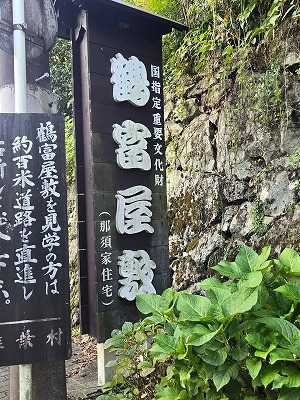 国指定重要文化財
鶴富屋敷
（那須家住宅）
鶴富屋敷を見学の方は
約百米道路を直進し
椎葉村